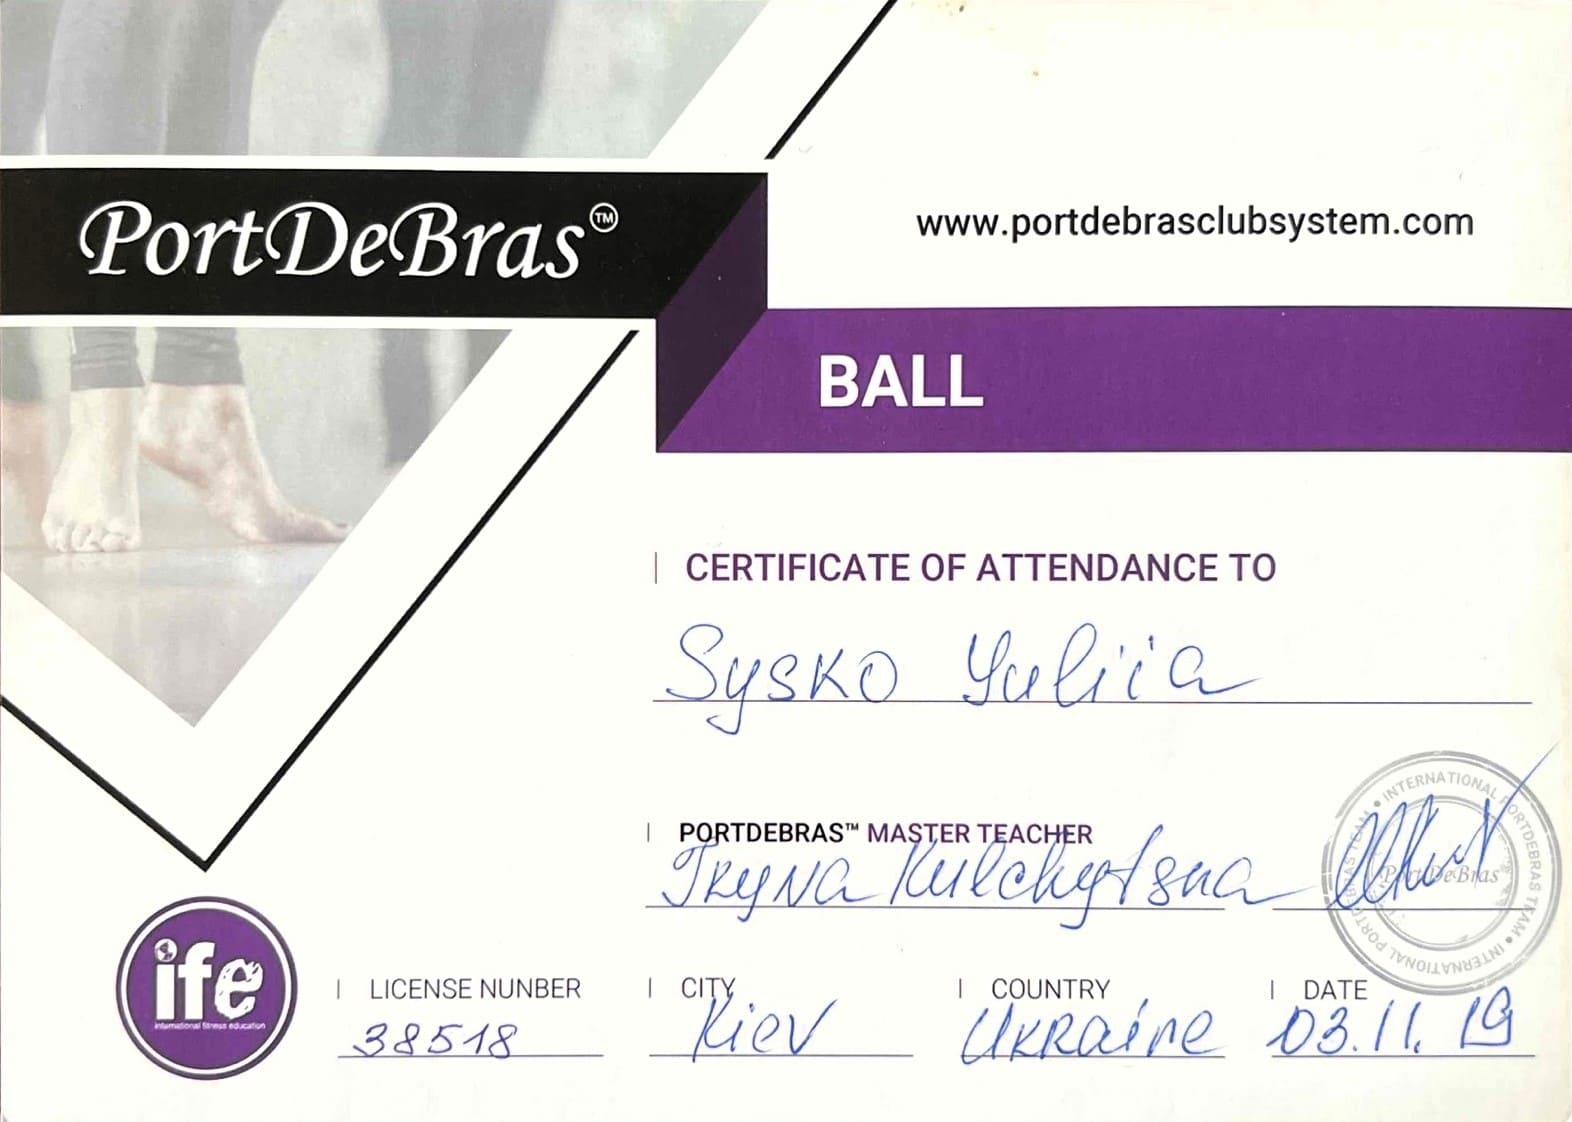 PortDeBras™
www.portdebrasclubsystem.com
BALL
CERTIFICATE OF ATTENDANCE TO
Sysko Yuliia
PORTDEBRAS™ MASTER TEACHER
Iryna Kulchytska
PortDeBras
INTERNATIONAL PORTDEBRAS TEAM • INTERNATIONAL PORTDEBRAS TEAM •
ife
international fitness education
LICENSE NUNBER
38518
CITY
Kiev
COUNTRY
Ukraine
DATE
03.11.19